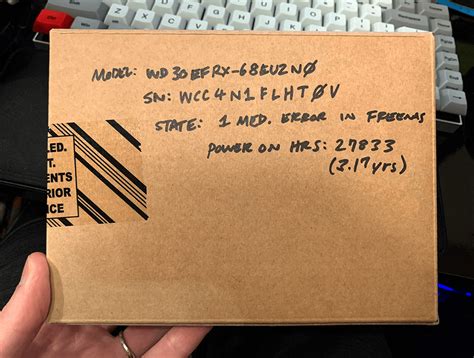 MODEL: WD30EFRX-68EUZN0
SN: WCC4N1FLHT0V
STATE: 1 MED. ERROR IN FREENAS
POWER ON HRS: 27833
(3.17 yrs)
LED.
T.
ENTS
RIOR
NCE